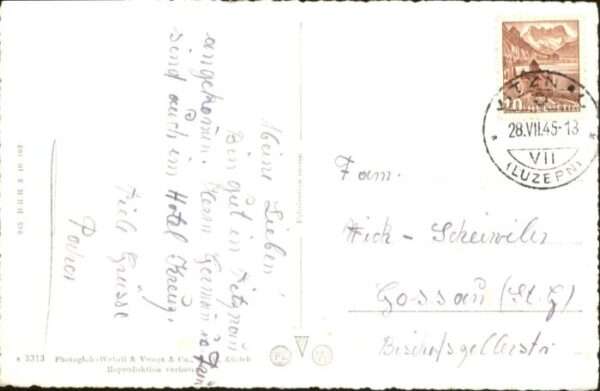 Meine Lieben!
Bin gut in Vitznau
angekomm. Herr Germann u. Fam
sind auch im Hotel Kreuz.
Viele Grüsse
Fam.
Hick - Scheiwiler
Gossau (St. G)
VITZNAU
28.VII.45-13
VII
(LUZERN)
20
Photoglob-Wehrli & Vouga & Co.,
Reproduktion verboten